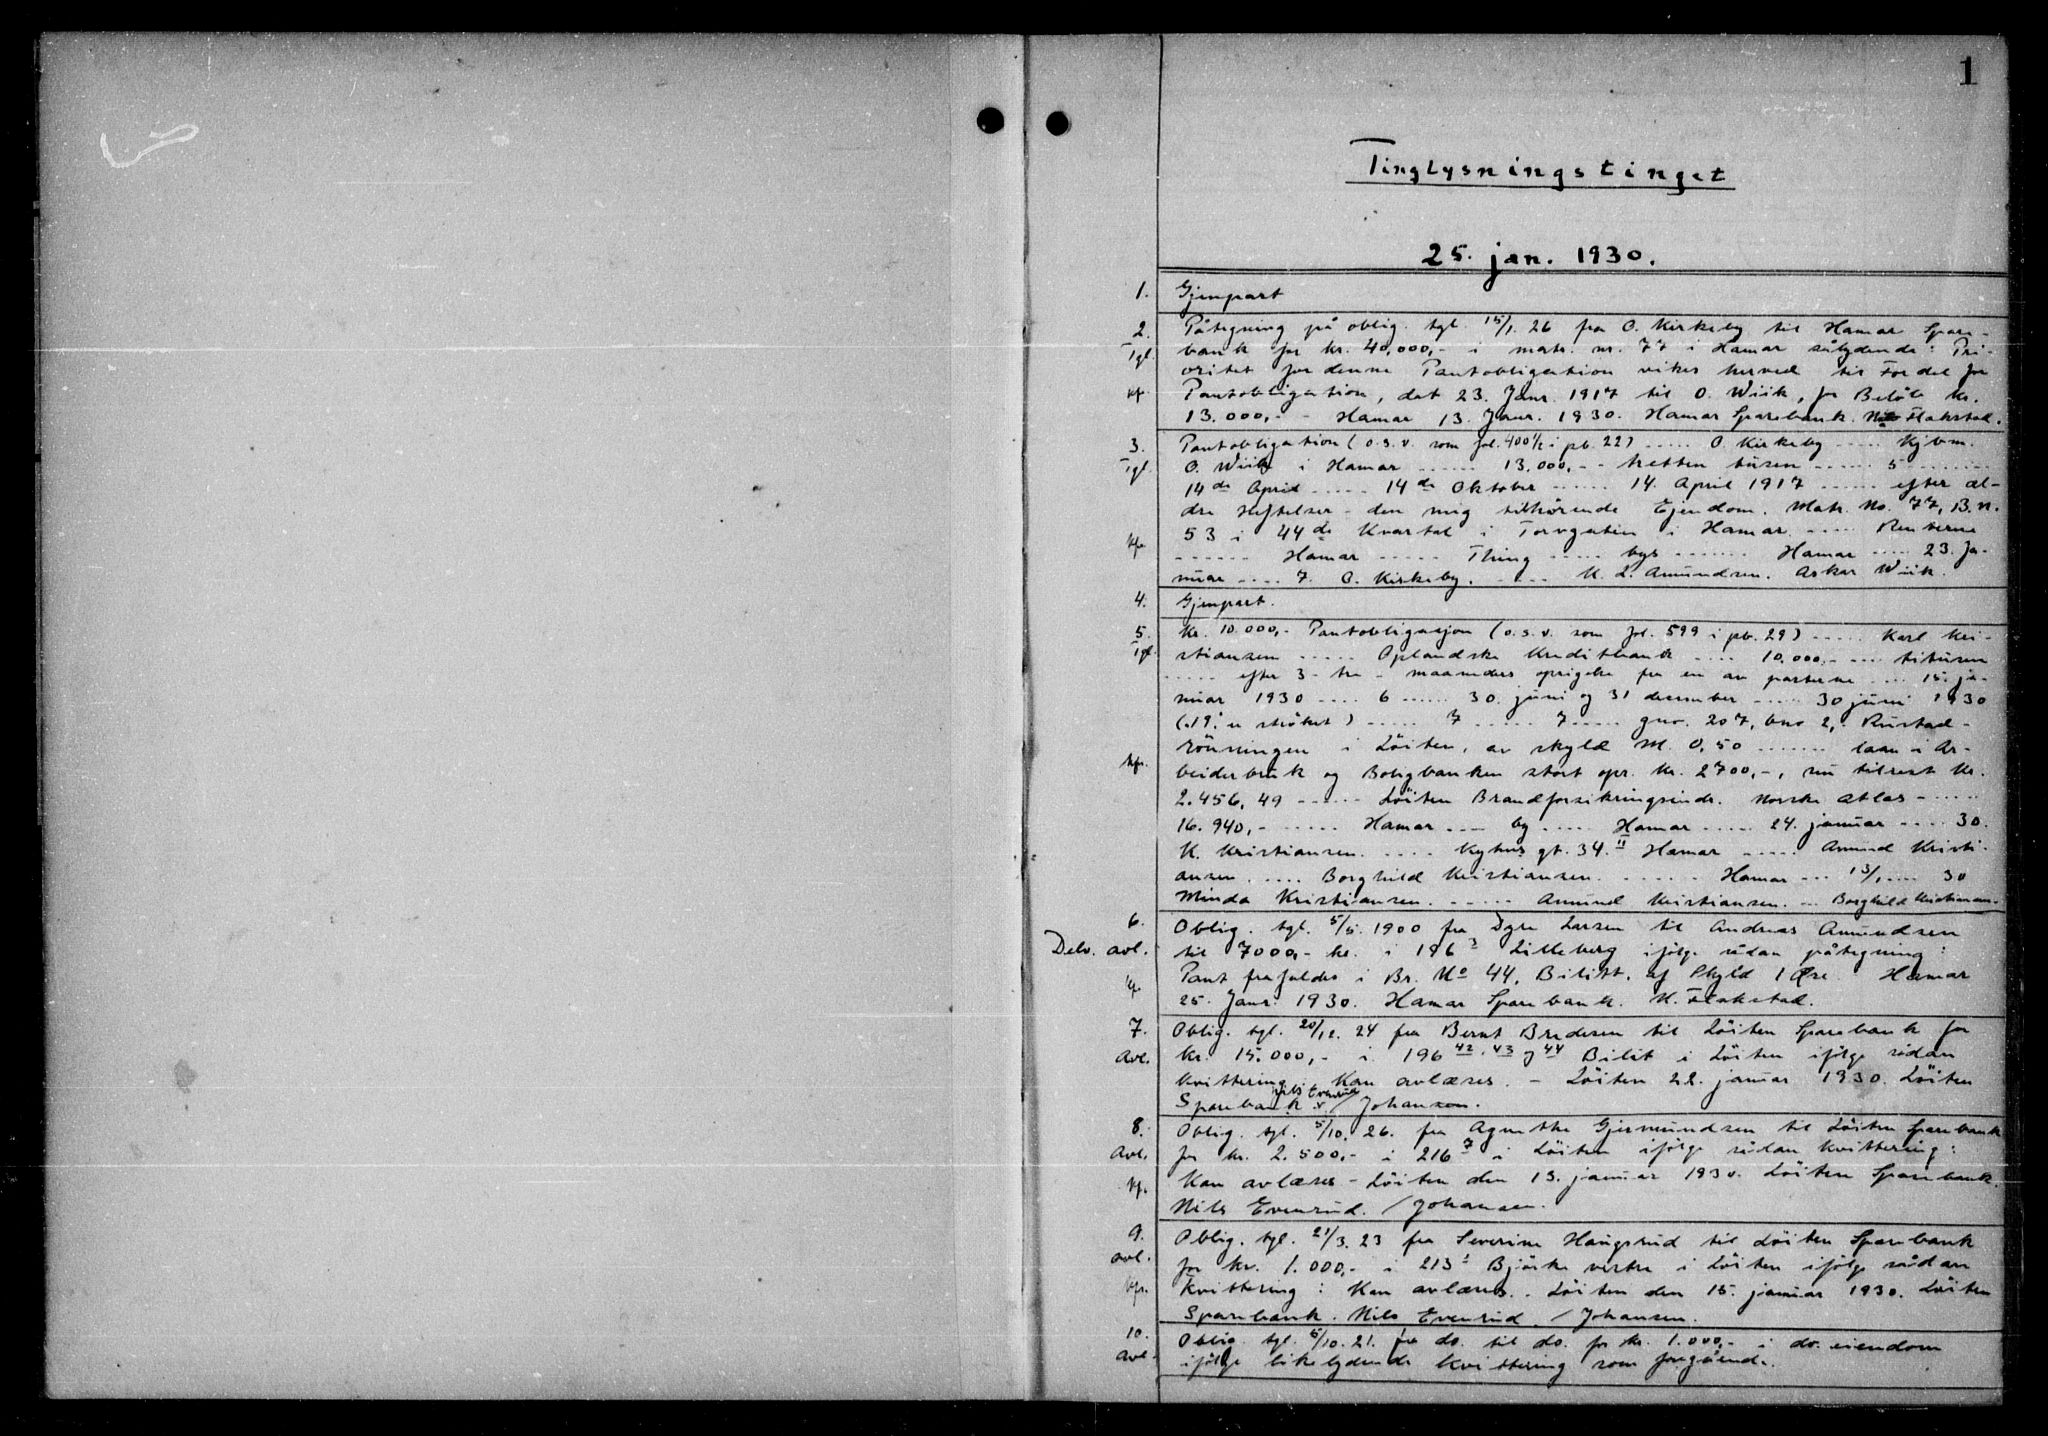 1
Tinglysningstinget
25. jan. 1930.
1. Gjenpart
2. Påtegning på oblig. tgl. 15/1. 26 fra O. Kirkeby til Hamar Spare-
Tgl. bank for kr. 40,000,- i matr. nr. 77 i Hamar sålydende: Pri-
oritet for denne Pantobligation vikes herved til Fordel for
kfr. Pantobligation, dat 23. Janr. 1917 til O. Wiik, for Beløb kr.
13.000,- - Hamar 13. Janr. 1930. Hamar Sparebank. Flakstad.
3. Pantobligation (o.s.v. som fol. 400 1/2 i pb. 22) ..... O. Kirkeby ..... Kjbm.
Tgl. O. Wiik i Hamar ...... 13.000,- - tretten tusen ..... 5 ........
14de April ..... 14de Oktober ...... 14. April 1917 ...... efter æl-
dre Heftelser - den mig tilhörende Ejendom. Matr. No. 77, B.n.
kfr. 53 i 44de Kvartal i Torvgaten i Hamar ..... Renterne
...... Hamar ..... Thing ..... bys ...... Hamar .... 23. Ja-
nuar .... 7. O. Kirkeby. ..... K. L. Amundsen. Askar Wiik.
4. Gjenpart.
5. Kr. 10.000,- Pantobligasjon (o.s.v. som fol. 599 i pb. 29) ..... Karl Kri-
Tgl. stiansen ..... Oplandske Kreditbank .... 10.000,- ... titusen
..... efter 3 - tre - maaneders opsigelse fra en av parterne ... 15. ja-
nuar 1930 .... 6 ...... 30. juni og 31 desember ..... 30 juni 1930
(.19. er strøket) ..... 7 ..... 7 ..... gnr. 207, bno 2, Rustad-
rönningen i Löiten, av skyld M. 0,50 ....... laan i Ar-
kfr. beiderbruk og Boligbanken stort opr. kr. 2700,-, nu tilrest kr.
2.456,49 ...... Löiten Brandforsikringsindr. Norske Atlas - .....
16.940,- ...... Hamar .... by ..... Hamar ..... 24. januar .... 30.
K. Kristiansen. .... Kyhus gt. 34. II Hamar ..... Amund Kristi-
ansen. .... Borghild Kristiansen. ...... Hamar ... 13/1 .... 30
Minda Kristiansen. ..... Amund Kristiansen. ... Borghild Kristiansen.
6. Oblig. tgl. 5/5. 1900 fra Lassen til Andreas Amundsen
Delv. avl. til 7000,- kr. i 196 3 Lilleberg ifølge sådan påtegning:
Pant frafaldes i Br. No 44, Bilitt, af Skyld 1 Öre. Hamar
25. Janr. 1930. Hamar Sparebank. N. Flakstad.
7. Oblig. tgl. 20/12. 24 fra Bernt Bredesen til Löiten Sparebank for
Avl. kr. 15.000,- i 196 42, 43 og 44 Bilit i Löiten ifølge sådan
kvittering: Kan avlæses. - Löiten 22. januar 1930. Löiten
Sparebank. Nils Evenrud / Johansen.
8. Oblig. tgl. 5/10. 26. fra Agnethe Gjermundsen til Löiten Sparebank
Avl. for kr. 2.500,- i 216 7 i Löiten ifølge sådan kvittering:
kfr. Kan avlæses - Löiten den 13. januar 1930. Löiten Sparebank.
Nils Evenrud. / Johansen.
9. Oblig. tgl. 21/3. 23 fra Severine Haugsrud til Löiten Sparebank
avl. for kr. 1.000,- i 213 1 Björke vestre i Löiten ifølge sådan
kfr. kvittering: Kan avlæses. Löiten den 15. januar 1930. Löiten
Sparebank. Nils Evenrud. / Johansen.
10. Oblig. tgl. 5/10. 21. fra do. til do. for kr. 1.000,- i do. eiendom
avl. ifølge likelydende kvittering som foregående.